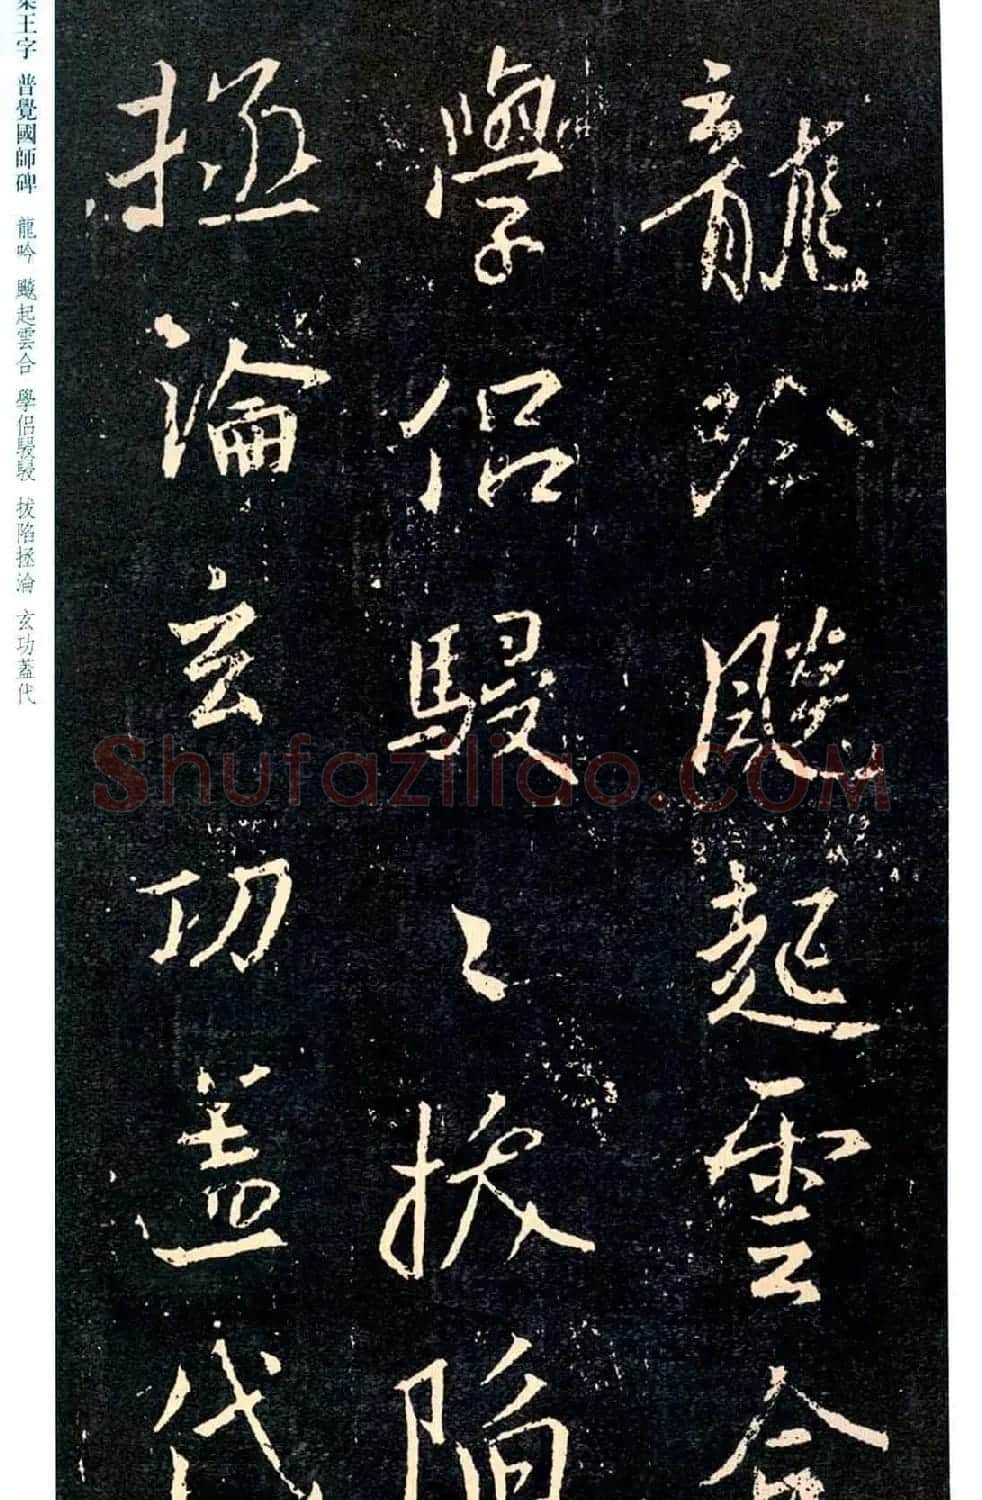 龍吟飈起雲合
學侶駸々拔陷
拯淪玄功蓋代
集王字 普覺國師碑 龍吟 飈起雲合 學侶駸駸 拔陷拯淪 玄功蓋代
Shufaziliao.COM